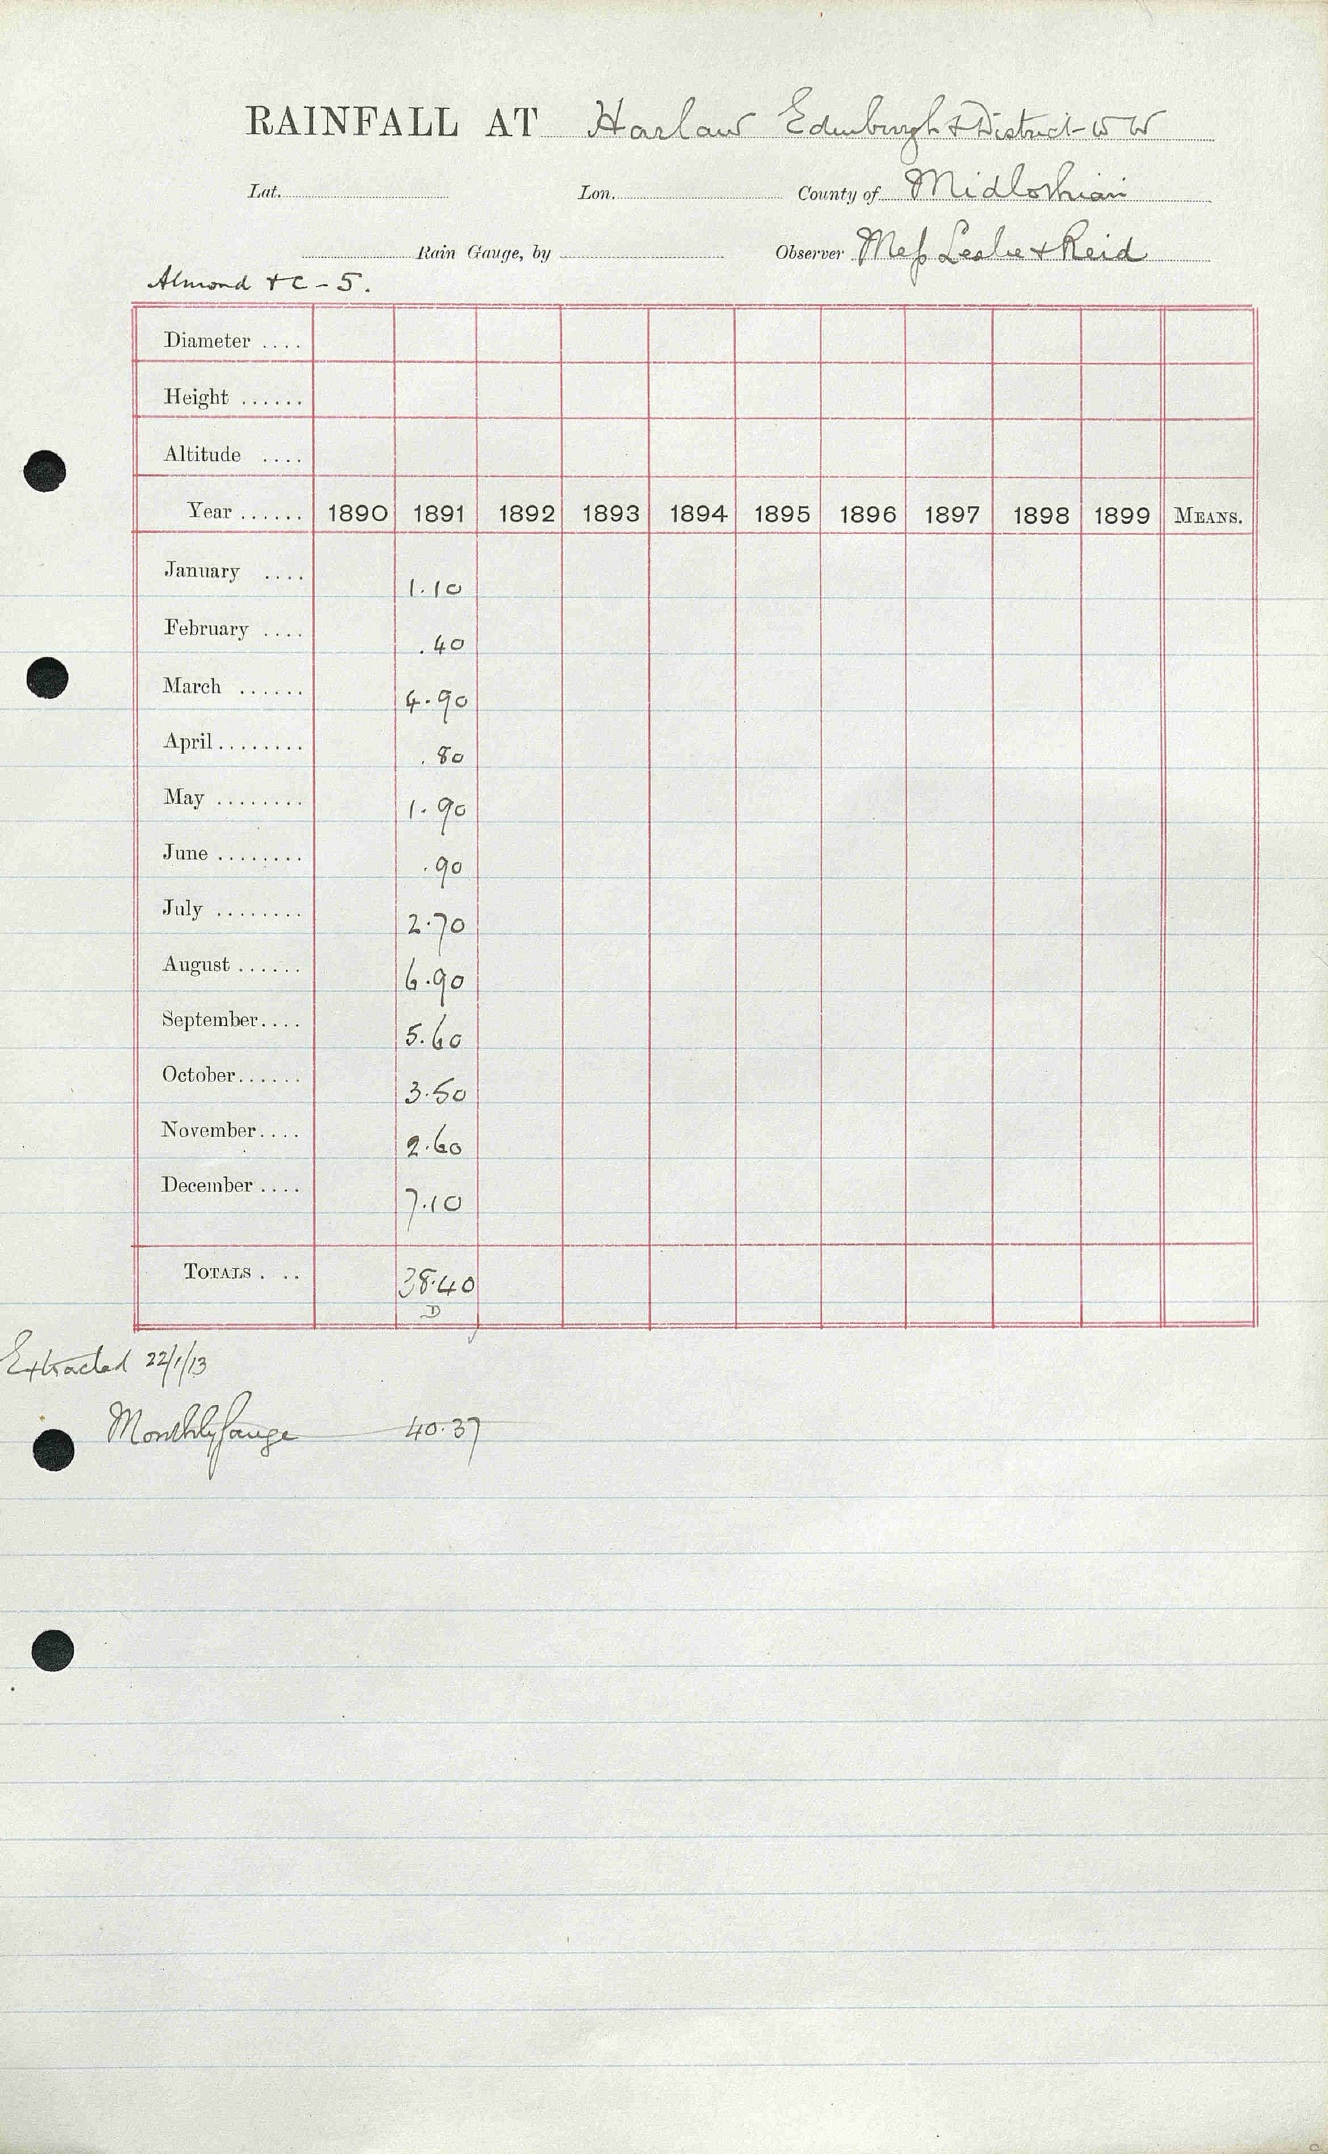 RAINFALL AT Harlaw Edinburgh & District W W
Lat. Lon. County of Midlothian
Rain Gauge, by Observer Mess Leslie & Reid
Almond & C - 5.
Diameter ....
Height ......
Altitude ....
Year ...... 1890 1891 1892 1893 1894 1895 1896 1897 1898 1899 MEANS.
January .... 1.10
February .... .40
March ...... 4.90
April ........ .80
May ........ 1.90
June ........ .90
July ........ 2.70
August ...... 6.90
September.... 5.60
October...... 3.50
November.... 2.60
December .... 7.10
TOTALS . .. 38.40
D
Extracted 22/1/13
Monthly Gauge 40.37